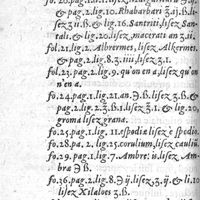 fo.20.pag.1.lig.1.lisez
& pag.2.lig.10. Rhabarbari ℨ.ij.ß.li-
sez ℨ ii.ß. & lig.16. Santriti, lisez San-
tali. & lig.20. lisez, macerats an ℨ.ii.
fol.21.lig.2. Albermes, lisez Alkermes.
& pag.2.lig.8. ℨ.iiii, lisez ℨ.i.
fo.23.pag.2.lig.9. qu'on en a, lisez qu'on
n'en a.
fo.24.pag.1.lig.21. an ℈.ß. lisez ℨ.ß. &
pag.2.lig.2. ℨ.i.ß. lisez ℨ.i. & lig.20.
groma lisez grana.
fo.25.pag.1.lig.11. espodia lisez è spodio.
fo.28.pa.2.lig.25. corulium, lisez cauliũ.
fo.29.pag.1.lig.7. Ambre: ii. lisez Am-
bra ℈ ß.
fo.36.pag.2.lig.8. ℈ ij. lisez, ℨ.ij. & li.10
lisez Xiloaloes ℨ.ß.